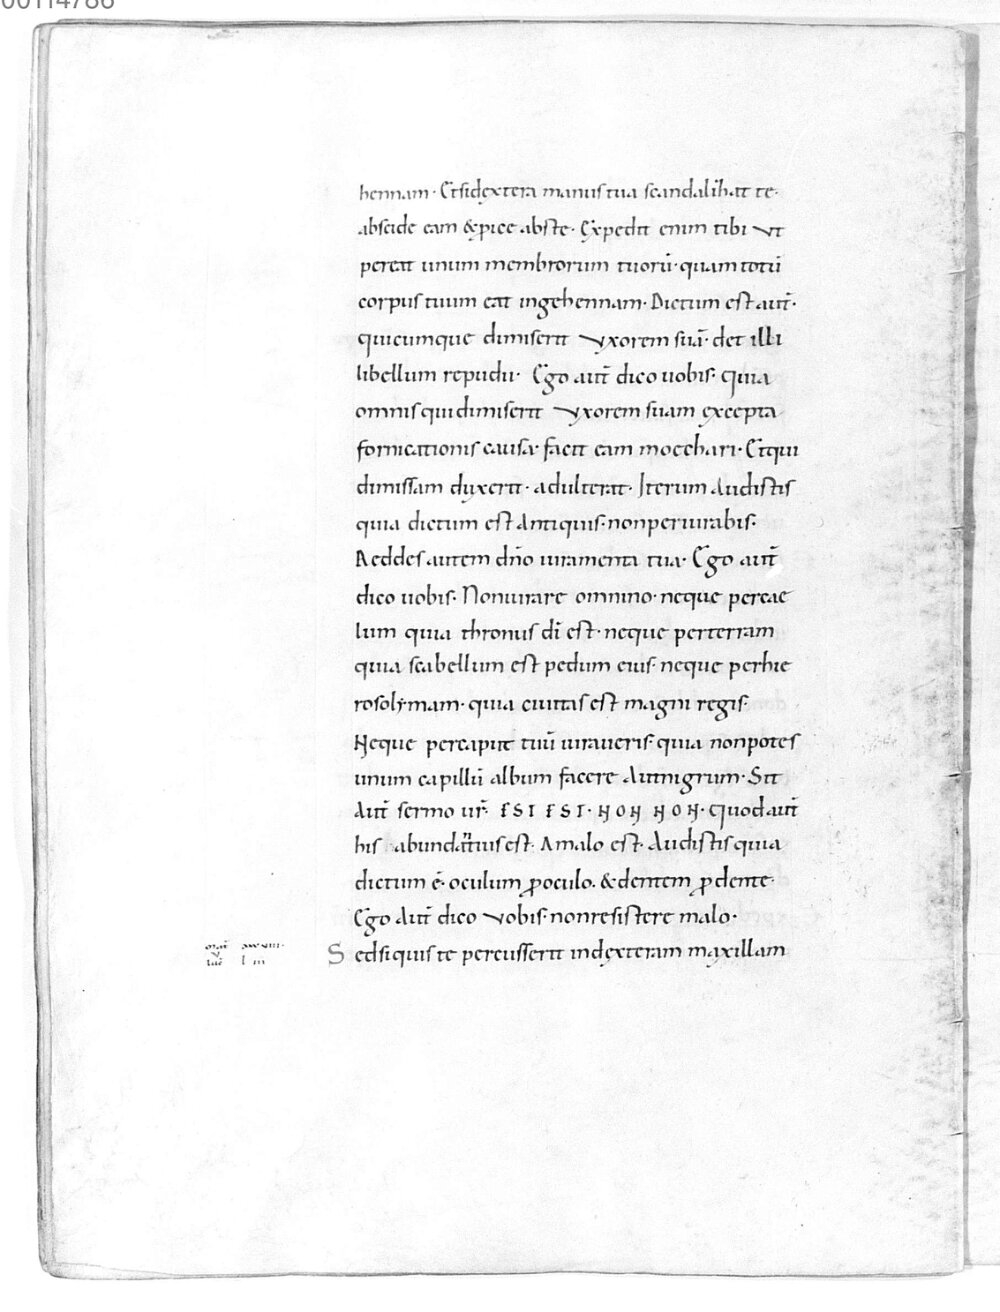 00114786
hennam· Et si dextera manus tua scandalizat te·
abscide eam & piee abs te· Expedit enim tibi ut
pereat unum membrorum tuorū· quam totū
corpus tuum eat in gehennam· Dictum est aut̄·
quicumque dimiserit uxorem suā· det illi
libellum repudii· Ego aut̄ dico uobis· quia
omnis qui dimiserit uxorem suam excepta
fornicationis causa· facit eam moechari· Et qui
dimissam duxerit· adulterat· Iterum Audistis
quia dictum est Antiquis· non periurabis·
Reddes autem dño iuramenta tua· Ego aut̄
dico uobis· Non iurare omnino· neque per cae
lum quia thronus dī est· neque per terram
quia scabellum est pedum eius· neque per hie
rosolymam· quia ciuitas est magni regis·
Neque per caput tuū iuraueris· quia non potes
unum capillū album facere Aut nigrum· Sit
Aut̄ sermo ur̄· EST EST· NON NON· Quod aut̄
his abundatius est· A malo est· Audistis quia
dictum ē· oculum ꝓ oculo· & dentem ꝓ dente·
Ego Aut̄ dico uobis· non resistere malo·
Sed si quis te percusserit in dexteram maxillam